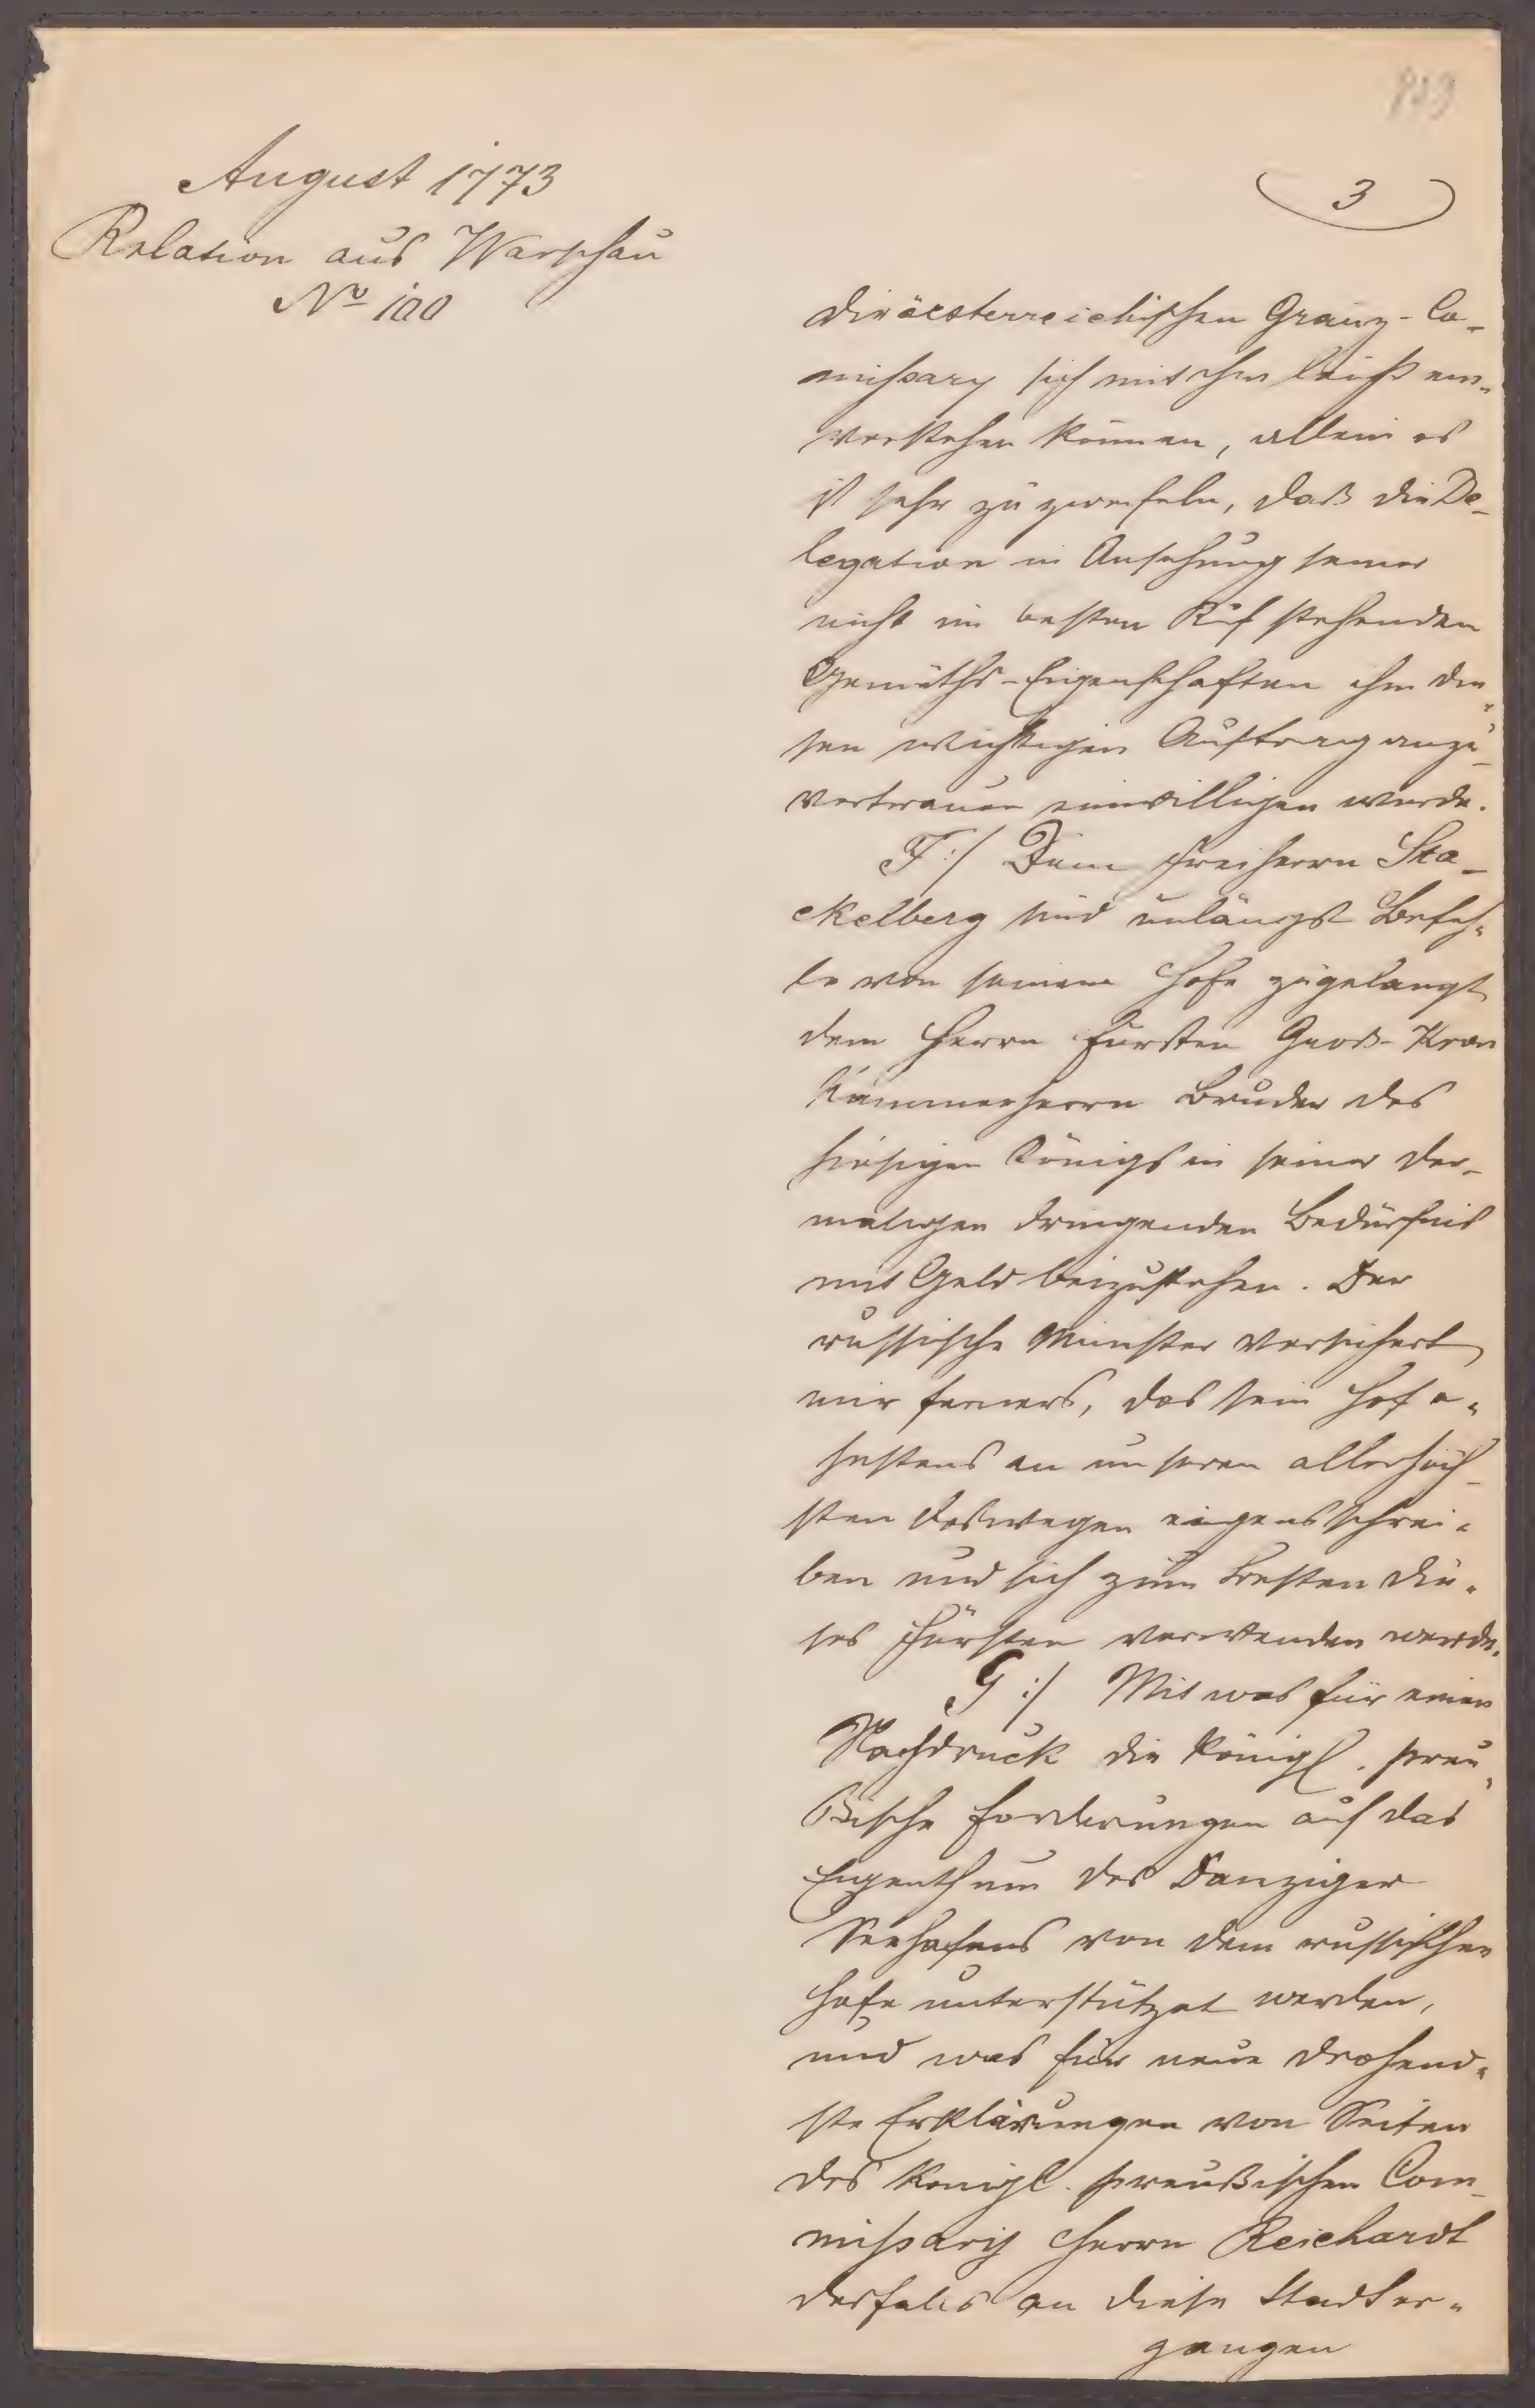 August 1773
Relation aus Warschau
No 100
3
die öesterreichischen Gränz-Co-
mißary sich mit ihm leicht ein-
verstehen können, allein es
ist sehr zu zweifeln, daß die De-
legation in Ansehung seiner
nicht im besten Ruf stehenden
Gemüths-Eigenschaften ihm die-
sen wichtigen Auftrag anzu-
vertrauen einwilligen werde.
F:/ Dem Freiherrn Sta-
ckelberg sind unlängst Befeh-
le von seinem Hofe zugelangt
dem Herrn Fürsten Groß-Kron
Kämmerherrn Bruder des
hiesigen Königs in seiner der-
maligen dringenden Bedürfnis
mit Geld beizustehen. Der
russische Minister versichert
mir ferners, das sein Hof e-
hestens an unseren allerhöch-
sten deswegen eigens schrei-
ben und sich zum Besten die-
ses Fürsten verwenden werde.
G:/ Mit was für einen
Nachdruck die königl. preu-
ßische Forderungen auf das
Eigenthum des Danziger
Seehafens von dem russischen
Hofe unterstützet werden,
und was für neue drohend-
ste Erklärungen von Seiten
des königl. preußischen Com-
mißarij Herrn Reichardt
desfalls an diese Stadt er-
gangen